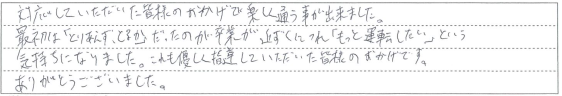 対応していただいた皆様のおかげで楽しく通う事が出来ました。
最初は「とりあえず、とるか」だったのが卒業が近ずくにつれ「もっと運転したい」という
気持ちになりました。これも優しく指導していただいた皆様のおかげです。
ありがとうございました。